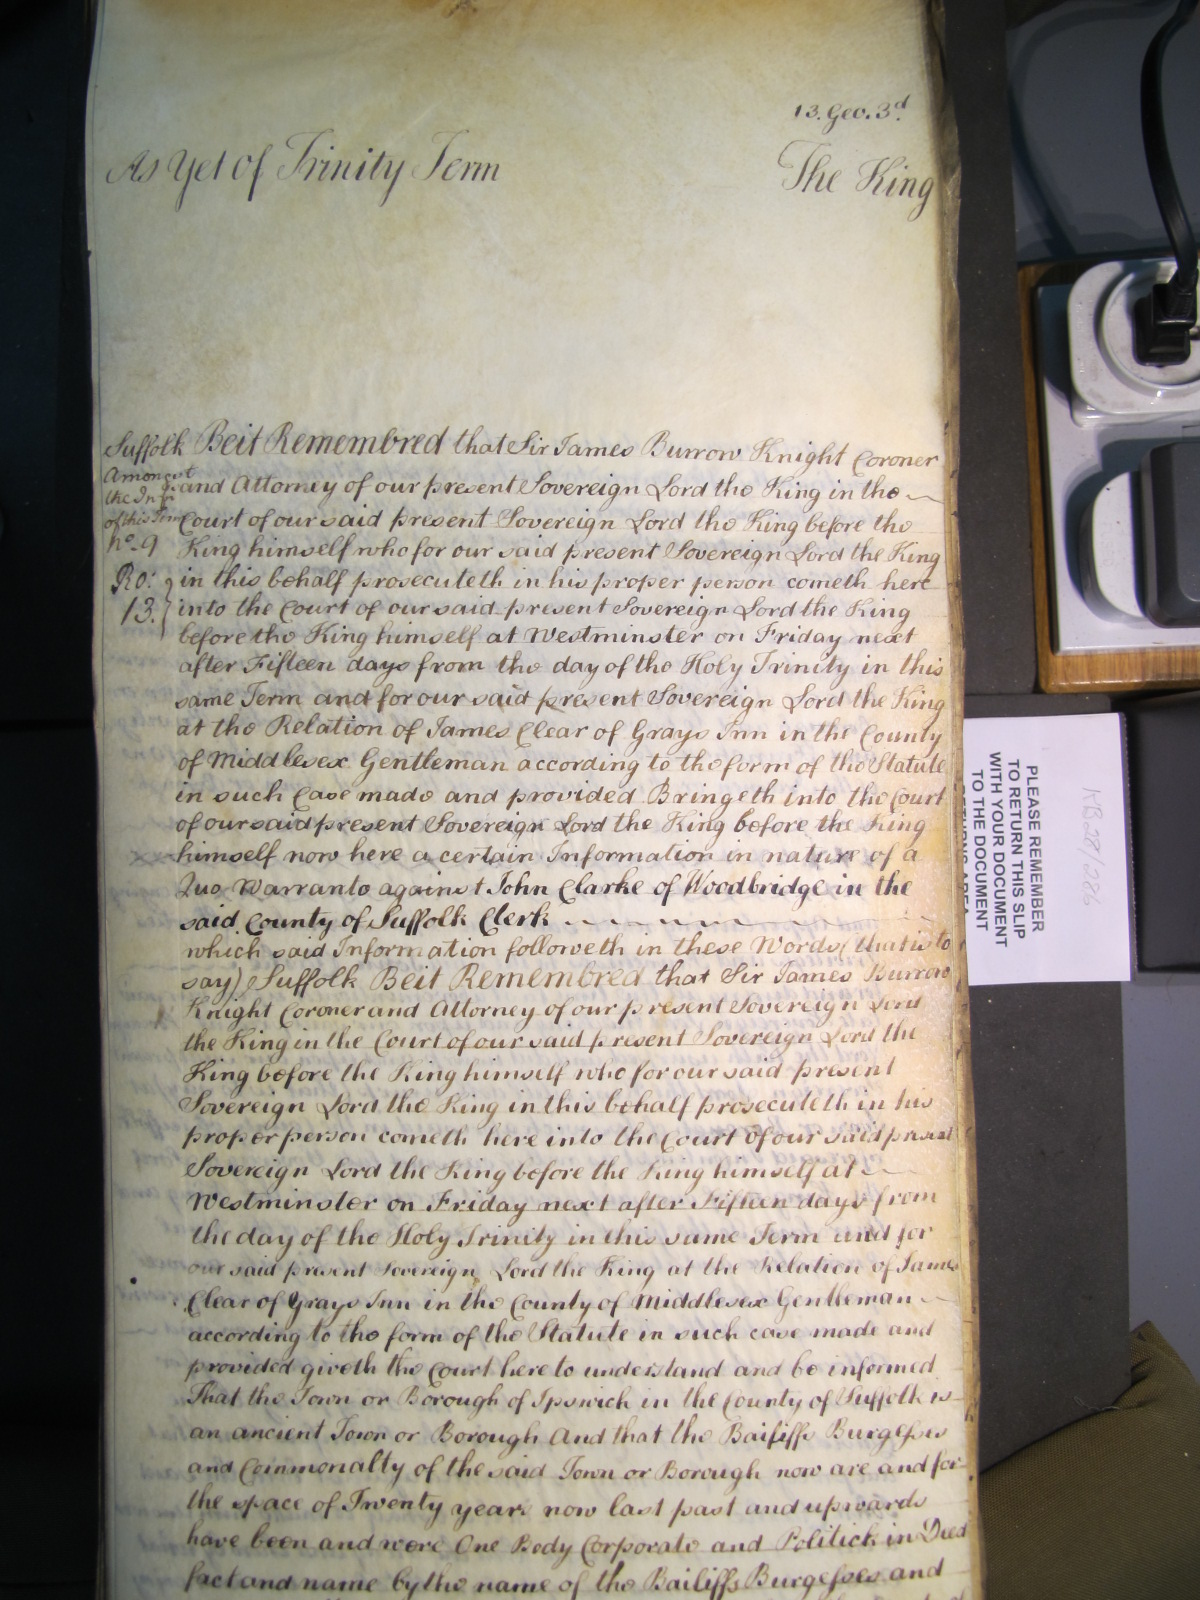 13. Geo. 3d.
As Yet of Trinity Term
The King
Suffolk Beit Remembred that Sir James Burrow Knight Coroner
Amongst
the Inq
of this Term
no. 9
Ro:
13.
and Attorney of our present Sovereign Lord the King in the
Court of our said present Sovereign Lord the King before the
King himself who for our said present Sovereign Lord the King
in this behalf prosecuteth in his proper person cometh here
into the Court of our said present Sovereign Lord the King
before the King himself at Westminster on Friday next
after Fifteen days from the day of the Holy Trinity in this
same Term and for our said present Sovereign Lord the King
at the Relation of James Clear of Grays Inn in the County
of Middlesex Gentleman according to the form of the Statute
in such Case made and provided Bringeth into the Court
of our said present Sovereign Lord the King before the King
himself now here a certain Information in nature of a
Quo Warranto against John Clarke of Woodbridge in the
said County of Suffolk Clerk
which said Information followeth in these Words (that is to
say) Suffolk Beit Remembred that Sir James Burrow
Knight Coroner and Attorney of our present Sovereign Lord
the King in the Court of our said present Sovereign Lord the
King before the King himself who for our said present
Sovereign Lord the King in this behalf prosecuteth in his
proper person cometh here into the Court of our said present
Sovereign Lord the King before the King himself at
Westminster on Friday next after Fifteen days from
the day of the Holy Trinity in this same Term and for
our said present Sovereign Lord the King at the Relation of James
Clear of Grays Inn in the County of Middlesex Gentleman
according to the form of the Statute in such case made and
provided giveth the Court here to understand and be informed
That the Town or Borough of Ipswich in the County of Suffolk is
an ancient Town or Borough And that the Bailiffs Burgesses
and Commonalty of the said Town or Borough now are and for
the space of Twenty years now last past and upwards
have been and were One Body Corporate and Politick in Deed
fact and name by the name of the Bailiffs Burgesses and
PLEASE REMEMBER
TO RETURN THIS SLIP
WITH YOUR DOCUMENT
TO THE DOCUMENT
KB 28/286